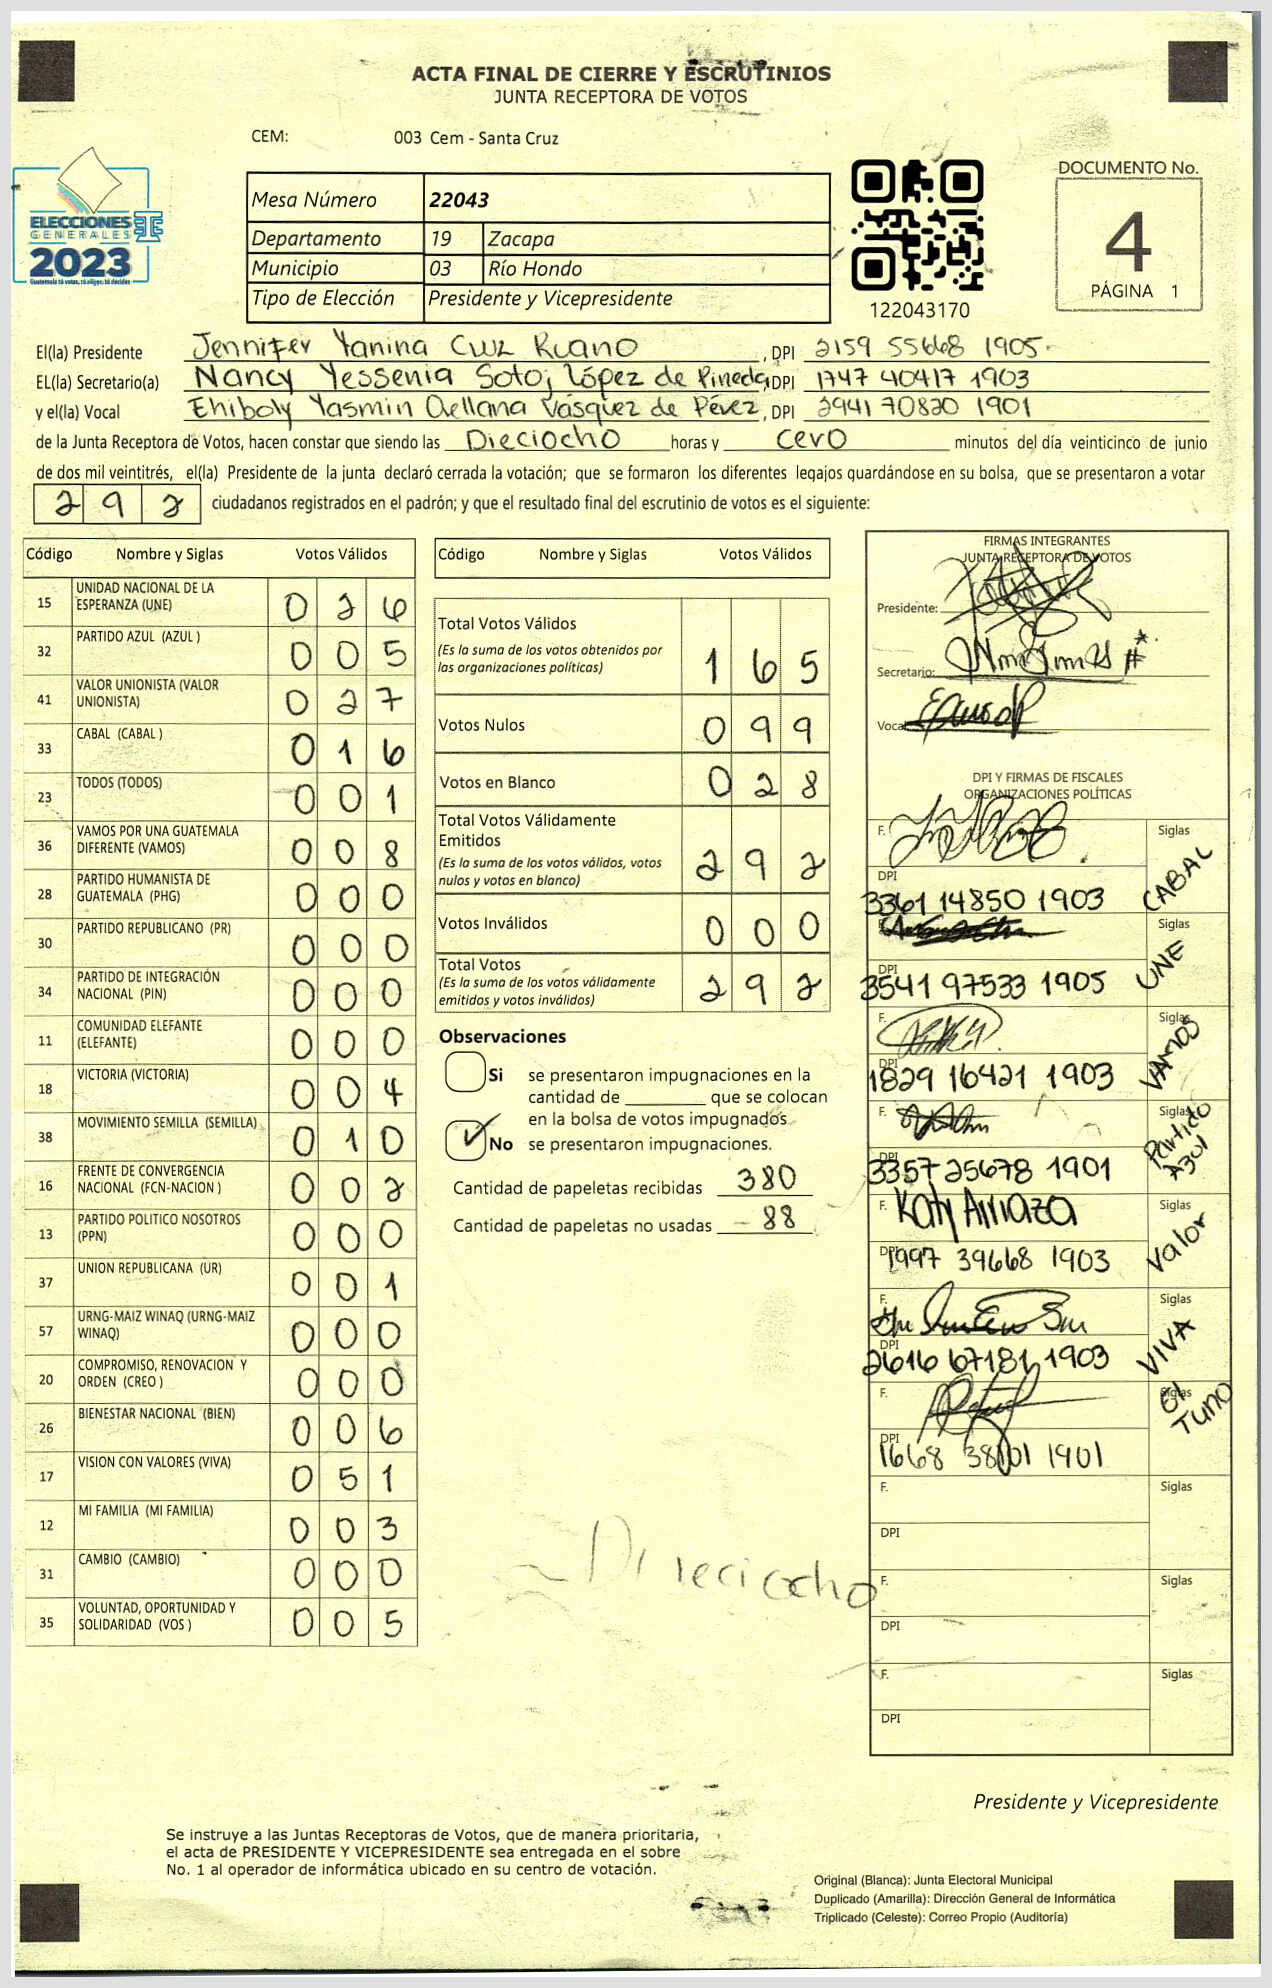 ACTA FINAL DE CIERRE Y ESCRUTINIOS
JUNTA RECEPTORA DE VOTOS
CEM: 003 Cem - Santa Cruz
ELECCIONES
GENERALES
2023
Guatemala tú votas, tú eliges, tú decides
Mesa Número 22043
Departamento 19 Zacapa
Municipio 03 Río Hondo
Tipo de Elección Presidente y Vicepresidente
122043170
DOCUMENTO No.
4
PÁGINA 1
El(la) Presidente Jennifer Yanina Cruz Ruano, DPI 2159 55668 1905
EL(la) Secretario(a) Nancy Yessenia Soto López de Pineda, DPI 1747 40417 1903
y el(la) Vocal Yasmin Orellana Vásquez de Pérez, DPI 2941 70820 1901
de la Junta Receptora de Votos, hacen constar que siendo las Dieciocho horas y cero minutos del día veinticinco de junio
de dos mil veintitrés, el(la) Presidente de la junta declaró cerrada la votación; que se formaron los diferentes legajos guardándose en su bolsa, que se presentaron a votar
292 ciudadanos registrados en el padrón; y que el resultado final del escrutinio de votos es el siguiente:
Código Nombre y Siglas Votos Válidos
15 UNIDAD NACIONAL DE LA ESPERANZA (UNE) 026
32 PARTIDO AZUL (AZUL ) 005
41 VALOR UNIONISTA (VALOR UNIONISTA) 027
33 CABAL (CABAL ) 016
23 TODOS (TODOS) 001
36 VAMOS POR UNA GUATEMALA DIFERENTE (VAMOS) 008
28 PARTIDO HUMANISTA DE GUATEMALA (PHG) 000
30 PARTIDO REPUBLICANO (PR) 000
34 PARTIDO DE INTEGRACIÓN NACIONAL (PIN) 000
11 COMUNIDAD ELEFANTE (ELEFANTE) 000
18 VICTORIA (VICTORIA) 004
38 MOVIMIENTO SEMILLA (SEMILLA) 010
16 FRENTE DE CONVERGENCIA NACIONAL (FCN-NACION ) 002
13 PARTIDO POLITICO NOSOTROS (PPN) 000
37 UNION REPUBLICANA (UR) 001
57 URNG-MAIZ WINAQ (URNG-MAIZ WINAQ) 000
20 COMPROMISO, RENOVACION Y ORDEN (CREO ) 000
26 BIENESTAR NACIONAL (BIEN) 006
17 VISION CON VALORES (VIVA) 051
12 MI FAMILIA (MI FAMILIA) 003
31 CAMBIO (CAMBIO) 000
35 VOLUNTAD, OPORTUNIDAD Y SOLIDARIDAD (VOS ) 005
Código Nombre y Siglas Votos Válidos
Total Votos Válidos 165
(Es la suma de los votos obtenidos por
las organizaciones políticas)
Votos Nulos 099
Votos en Blanco 028
Total Votos Válidamente
Emitidos 292
(Es la suma de los votos válidos, votos
nulos y votos en blanco)
Votos Inválidos 000
Total Votos 292
(Es la suma de los votos válidamente
emitidos y votos inválidos)
Observaciones
Si se presentaron impugnaciones en la
cantidad de ________ que se colocan
en la bolsa de votos impugnados
✓ No se presentaron impugnaciones.
Cantidad de papeletas recibidas 380
Cantidad de papeletas no usadas 88
Direciocho
FIRMAS INTEGRANTES
JUNTA RECEPTORA DE VOTOS
Presidente:
Secretario:
Vocal
DPI Y FIRMAS DE FISCALES
ORGANIZACIONES POLÍTICAS
F. Siglas CABAL
DPI 3361 14850 1903
F. Siglas UNE
DPI 3541 97533 1905
F. Siglas VAMOS
DPI 1829 16421 1903
F. Siglas Partido Azul
DPI 3357 25678 1901
F. Katy Arriaza Siglas Valor
DPI 1997 39668 1903
F. Siglas VIVA
DPI 2616 67181 1903
F. Siglas El TUNO
DPI 1668 38101 1901
F. Siglas
DPI
F. Siglas
DPI
F. Siglas
DPI
Presidente y Vicepresidente
Se instruye a las Juntas Receptoras de Votos, que de manera prioritaria,
el acta de PRESIDENTE Y VICEPRESIDENTE sea entregada en el sobre
No. 1 al operador de informática ubicado en su centro de votación.
Original (Blanca): Junta Electoral Municipal
Duplicado (Amarilla): Dirección General de Informática
Triplicado (Celeste): Correo Propio (Auditoría)